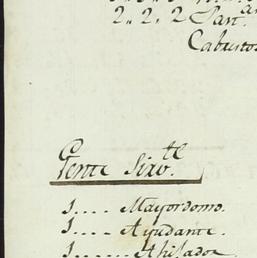 2,, 2,, 2 San
Cabustos
Gente Sirv.te
1.... Mayordomo.
1.... Ayudante.
1....... Ahisador